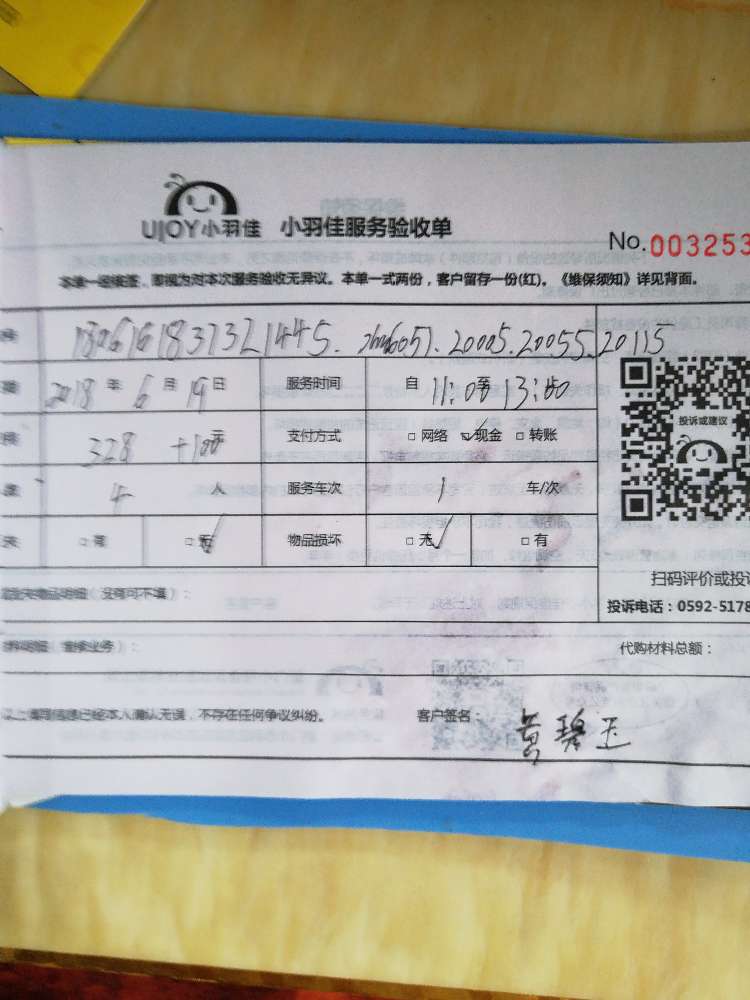 UJOY小羽佳 小羽佳服务验收单
No.003253
本单一经接签，即视为对本次服务验收无异议。本单一式两份，客户留存一份(红)。《维保须知》详见背面。
180616183732 1445. 20005.20055.20115
2018年6月19日 服务时间 自11:00至13:00
328+100元 支付方式 网络 现金 转账
投诉或建议
4人 服务车次 1 车/次
无 物品损坏 无 有
扫码评价或投诉
（没有可不填）：
投诉电话：0592-5178
代购材料总额：
以上填写信息已经本人确认无误，不存在任何争议纠纷。 客户签名： 黄碧玉